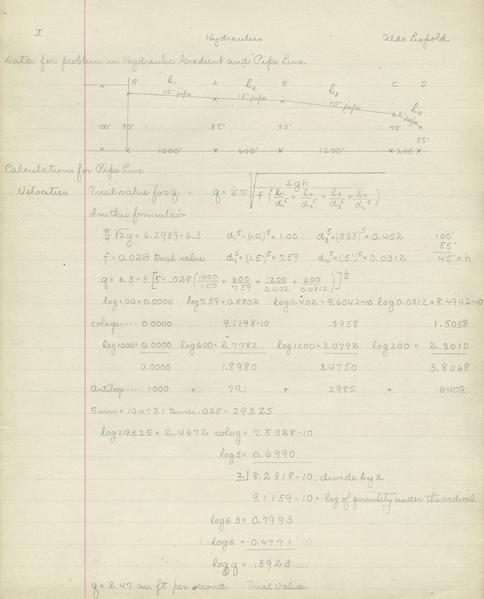 I
Hydraulics Aldo Leopold
Data for problem in Hydraulic Gradient and Pipe Line.
R l₁ A l₂ B l₃ C D
12" pipe 18" pipe 10" pipe l₄
6" pipe
100' 90' 85' 80' 70' 55'
1000' 600' 1200' 200'
Calculations for Pipe Line
Velocities Trial value for q. q = ¼π √(2gh / f(l₁/d₁⁵ + l₂/d₂⁵ + l₃/d₃⁵ + l₄/d₄⁵))
In this formula:-
π/4 √2g = 6.2987 = 6.3 d₁⁵ = (1.0')⁵ = 1.00 d₃⁵ = (.833')⁵ = 0.402 100'
55'
f = 0.028 trial value d₂⁵ = (1.5')⁵ = 7.59 d₄⁵ = (.5')⁵ = 0.0312 45' = h
log 1.00 = 0.0000 log 7.59 = 0.8802 log 0.402 = 9.6042-10 log 0.0312 = 8.4942-10
cologs---- 0.0000 9.1198-10 .3958 1.5058
log 1000 = 0.0000 log 600 = 2.7782 log 1200 = 3.0792 log 200 = 2.3010
0.0000 1.8980 3.4750 3.8068
Antilogs--- 1000 + 79.1 + 2985 + 6409
Sum = 10473.1 times .028 = 293.25
log 293.25 = 2.4672 colog = 7.5328-10
log 5 = 0.6990
2) 8.2318-10, divide by 2
9.1159-10 = log of quantity under the radical.
log 6.3 = 0.7993
0.4771
log q = .3923
q = 2.47 cu ft per second. Trial Value.